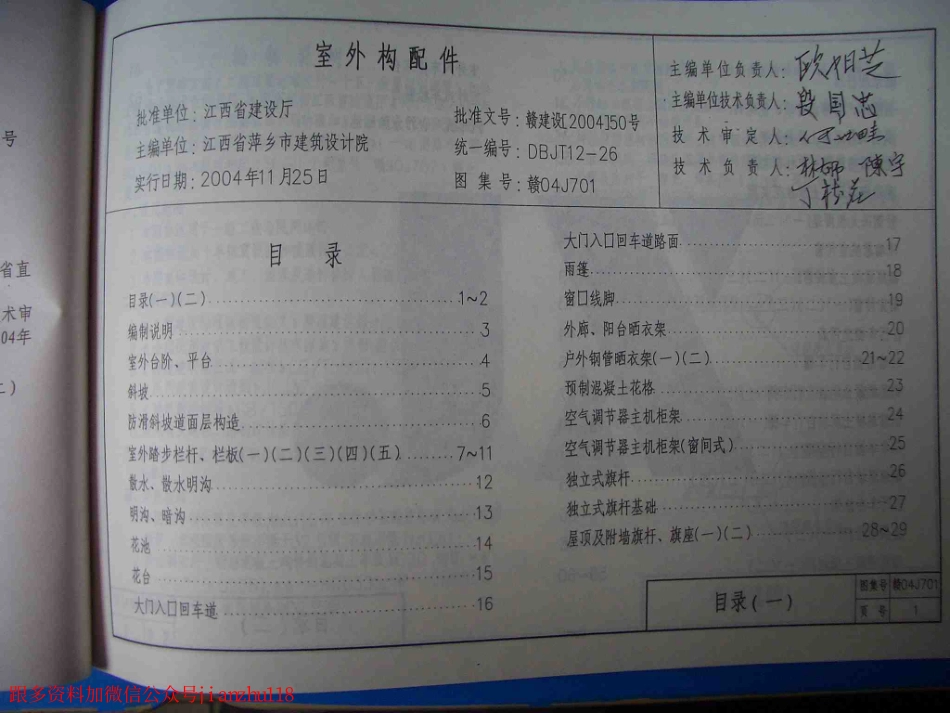 室外构配件
批准单位：江西省建设厅
主编单位：江西省萍乡市建筑设计院
实行日期：2004年11月25日
批准文号：赣建设[2004]50号
统一编号：DBJT12-26
图集号：赣04J701
主编单位负责人：
主编单位技术负责人：
技术审定人：
技术负责人：
目录
目录(一)(二) 1~2
编制说明 3
室外台阶、平台 4
斜坡 5
防滑斜坡道面层构造 6
室外踏步栏杆、栏板(一)(二)(三)(四)(五) 7~11
散水、散水明沟 12
明沟、暗沟 13
花池 14
花台 15
大门入口回车道 16
大门入口回车道路面 17
雨篷 18
窗口线脚 19
外廊、阳台晒衣架 20
户外钢管晒衣架(一)(二) 21~22
预制混凝土花格 23
空气调节器主机柜架 24
空气调节器主机柜架(窗间式) 25
独立式旗杆 26
独立式旗杆基础 27
屋顶及附墙旗杆、旗座(一)(二) 28~29
目录(一)
图集号 赣04J701
页号 1
号
省直
术审
04年
跟多资料加微信公众号jianzhu118